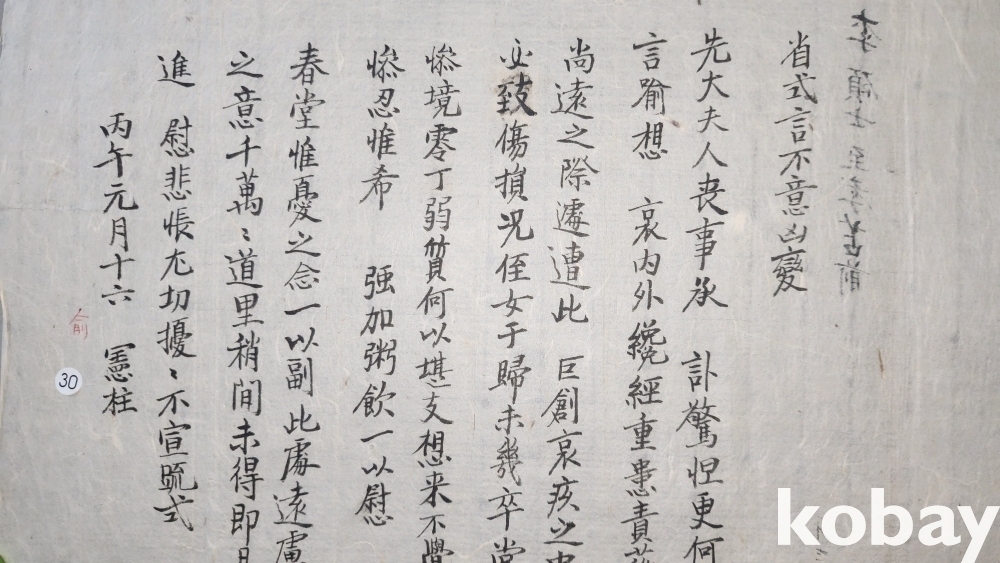 省式言不意凶變
先大夫人喪事承 訃驚怛更何
言喻想 哀內外纔經重患責
尚遠之際遽遭此 巨創哀疚之
必致傷損况侄女于歸未幾卒當
慘境零丁弱質何以堪支想来不覺
慘忍惟希 强加粥飮一以慰
春堂惟憂之念一以副此處遠慮
之意千萬〻道里稍間未得即
進 慰悲悵尤切擾〻不宣䟽式
丙午元月十六 憲柱
俞
30
kobay